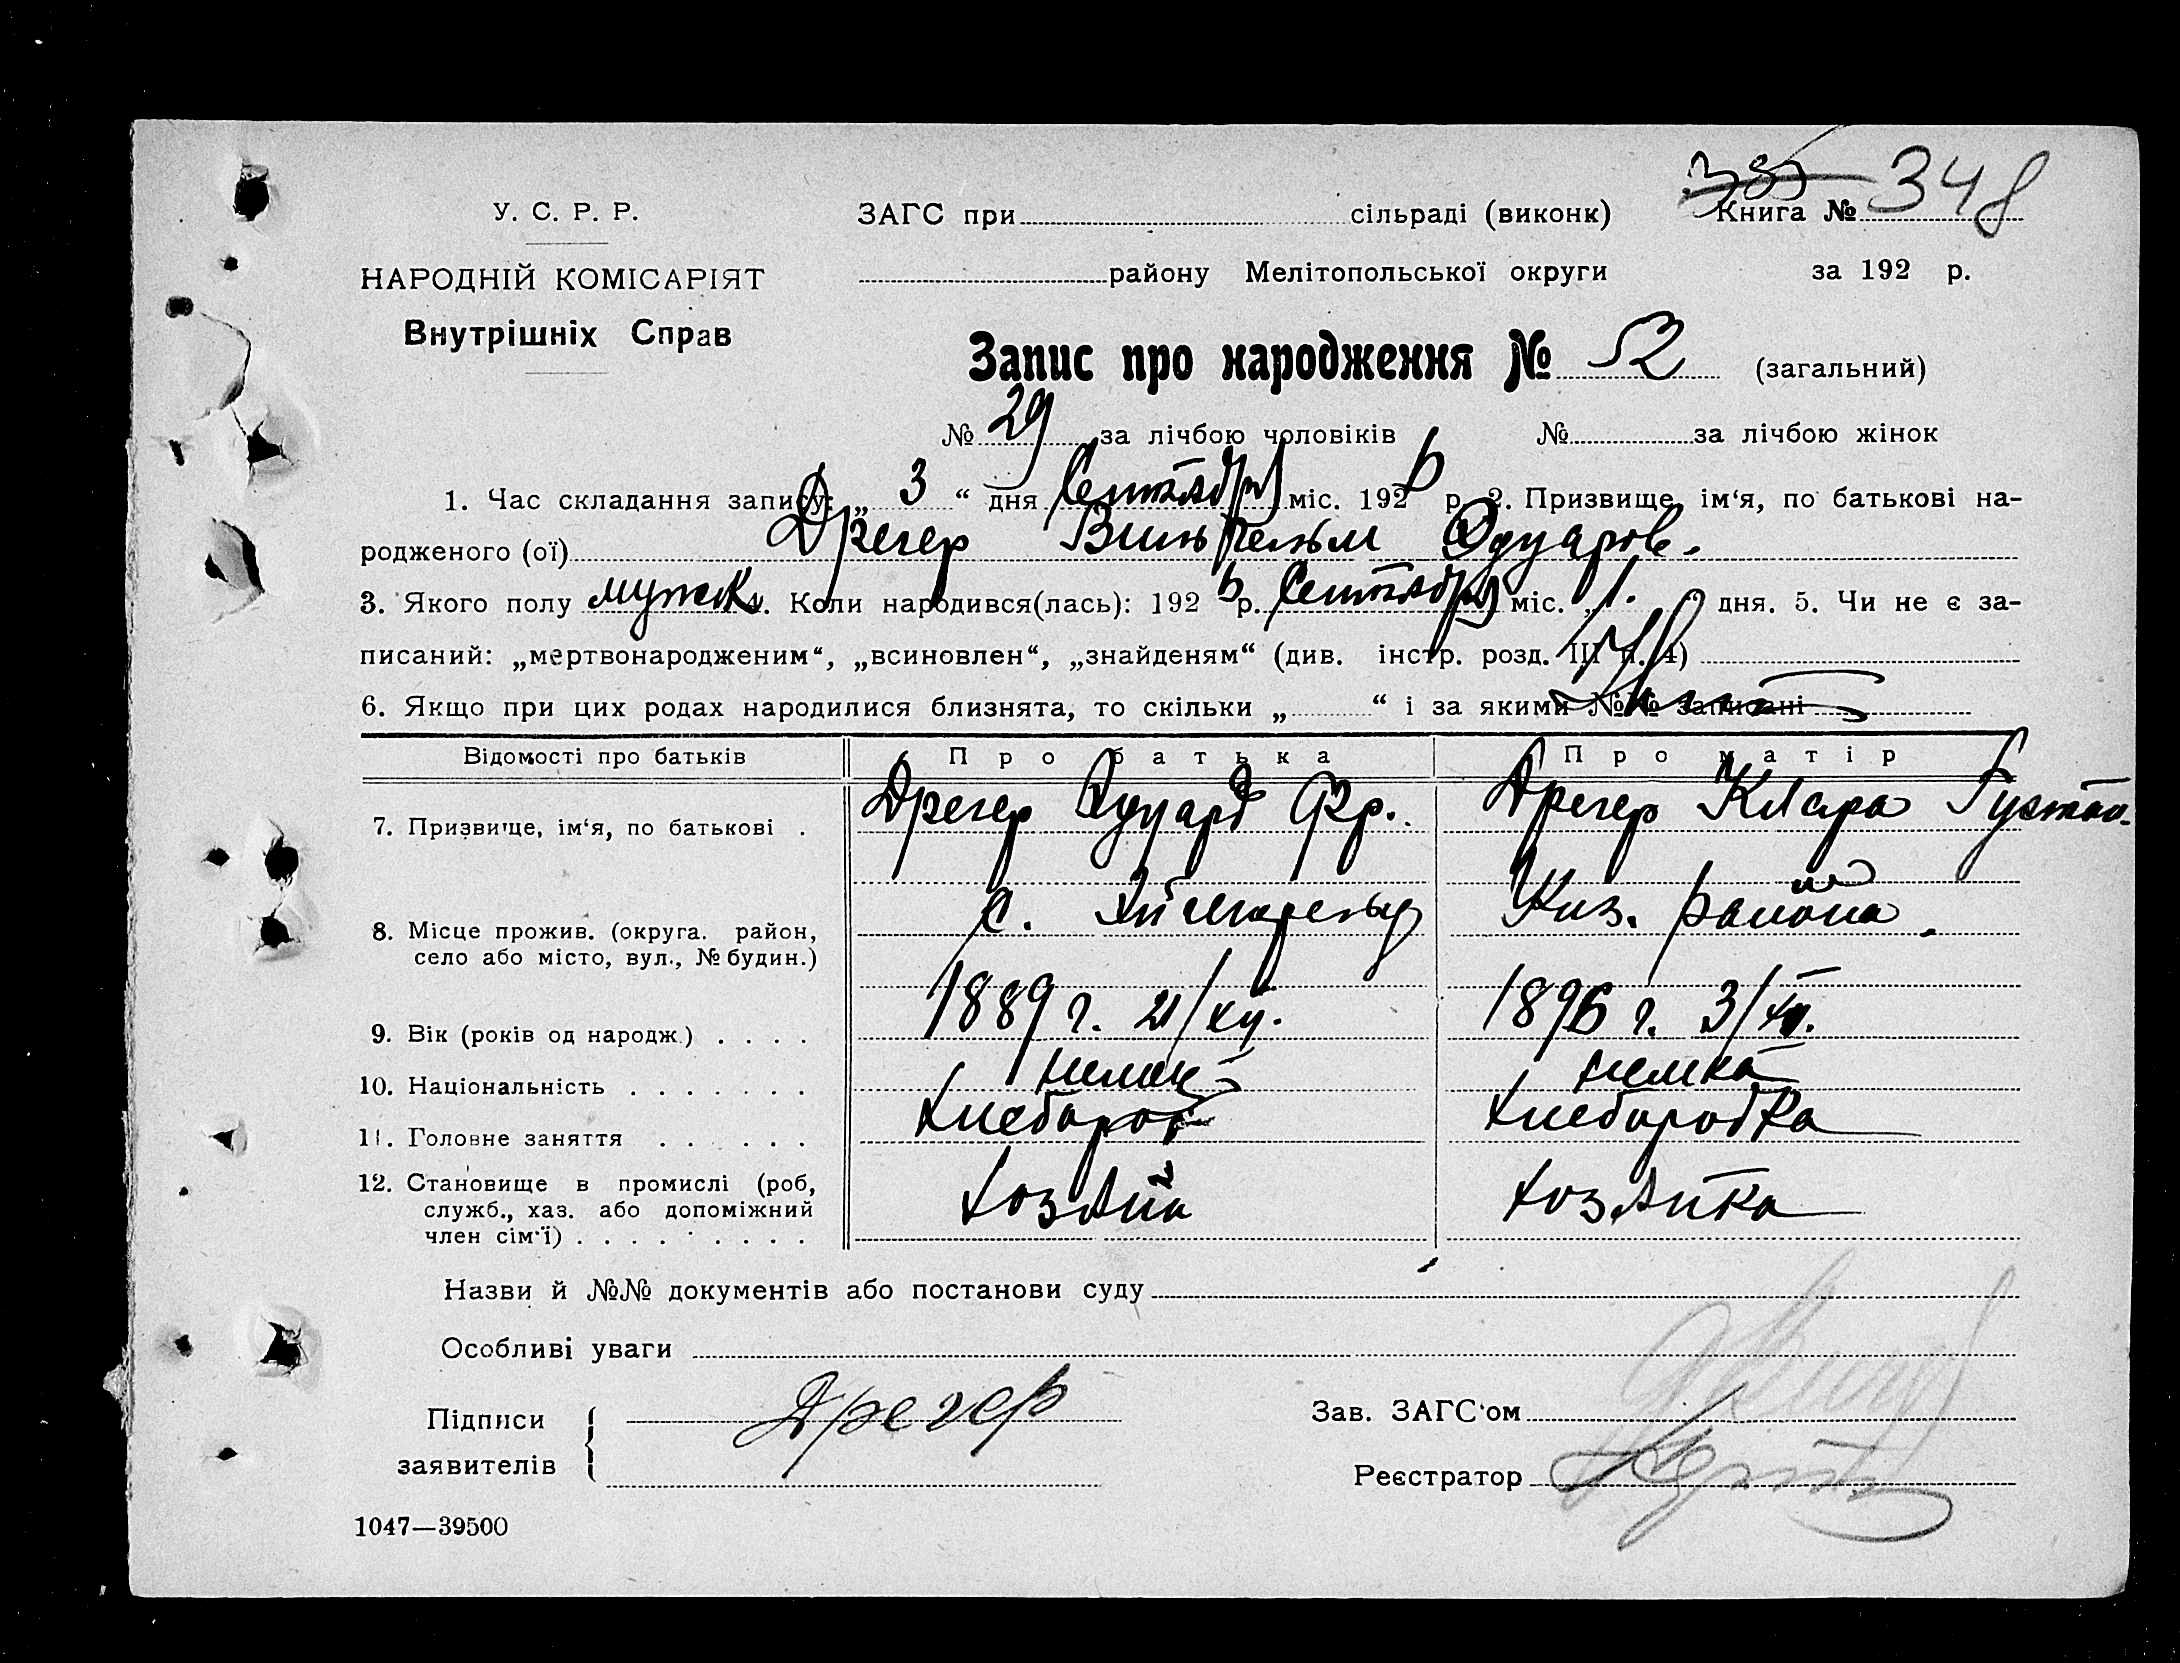 335 348
У. С. Р. Р. ЗАГС при сільраді (виконк) Книга №
НАРОДНІЙ КОМІСАРІЯТ району Мелітопольської округи за 192 р.
Внутрішніх Справ
Запис про народження № 52 (загальний)
№ 29 за лічбою чоловіків № за лічбою жінок
1. Час складання запису: „ 3 “ дня Сентября міс. 192 р. 2. Призвище, ім‘я, по батькові на-
родженого (ої) Дрегер Вильгельм Эдуаров.
3. Якого полу мужск 4. Коли народився(лась): 192 р. Сентября міс. „ 1. “ дня. 5. Чи не є за-
писаний: „мертвонародженим“, „всиновлен“, „знайденям“ (див. інстр. розд. III п. 4)
6. Якщо при цих родах народилися близнята, то скільки „ “ і за якими №№ записані Нет
Відомості про батьків Про батька Про матір
7. Призвище, ім‘я, по батькові . Дрегер Эдуард Фр. Дрегер Клара Густав.
8. Місце прожив. (округа. район, с. района.
село або місто, вул., № будин.)
9. Вік (років од народж.) . . . . 1889 г. 21/XII. 1896 г.
10. Національність . . . . . . . немец немка
11. Головне заняття . . . . . . Хлебороб Хлеборобка
12. Становище в промислі (роб, Хозяин Хозяйка
служб., хаз. або допоміжний
член сім‘ї) . . . . . . . . .
Назви й №№ документів або постанови суду
Особливі уваги
Підписи Дрегер Зав. ЗАГС‘ом
заявителів Реєстратор
1047—39500